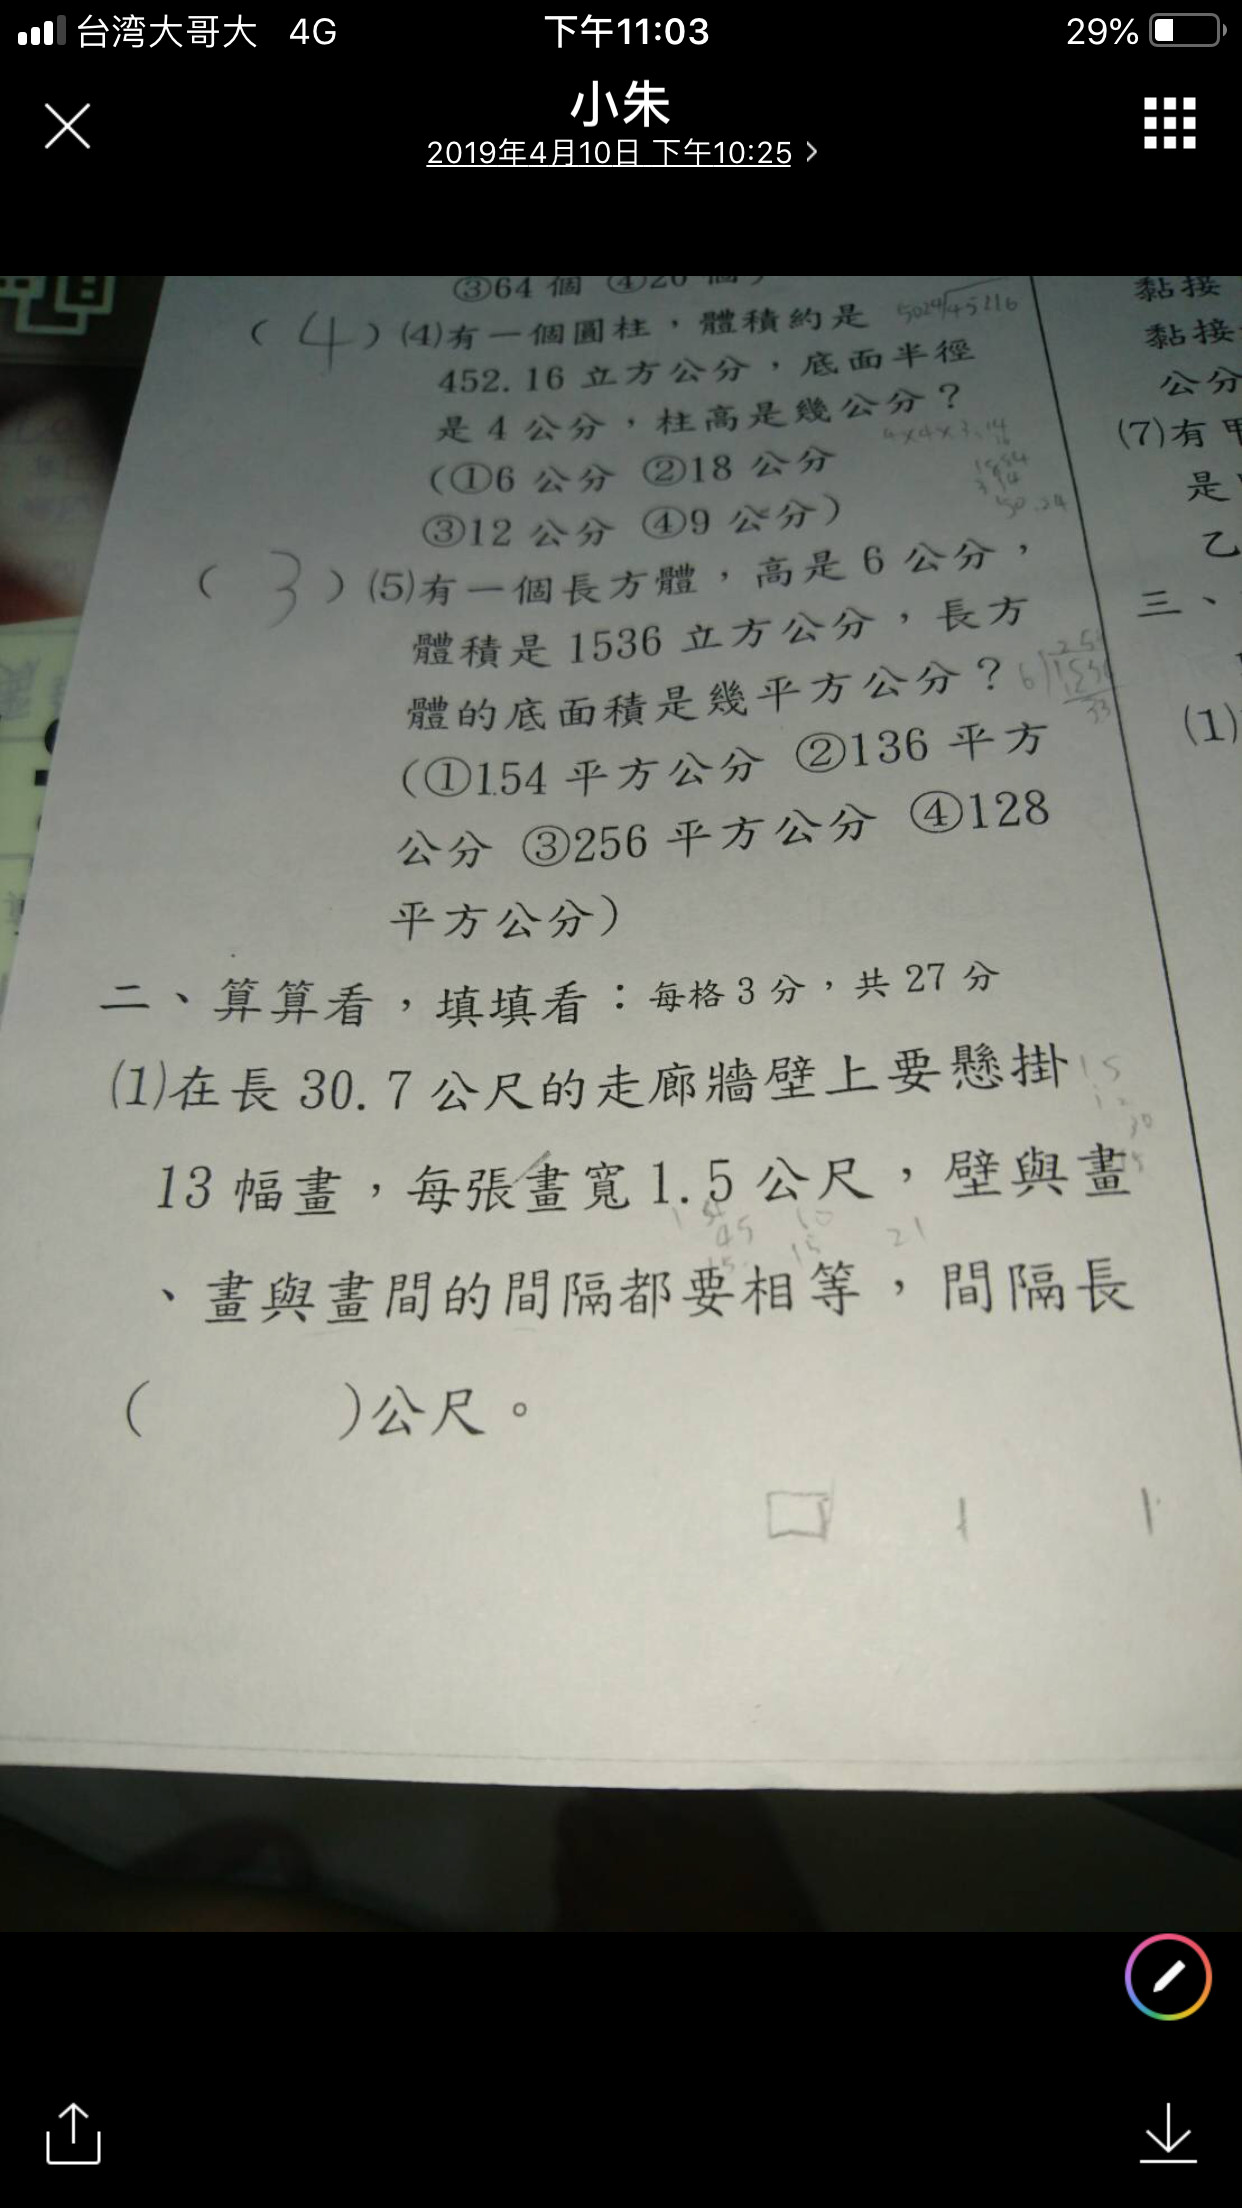 台湾大哥大 4G 下午11:03 29%
小朱
2019年4月10日 下午10:25
③64個 ④20個)
5024 45216
( 4 ) (4)有一個圓柱，體積約是
452.16 立方公分，底面半徑
是 4 公分，柱高是幾公分？
4×4×3.14
(①6 公分 ②18 公分
50.24
③12 公分 ④9 公分)
( 3 ) (5)有一個長方體，高是 6 公分，
體積是 1536 立方公分，長方
體的底面積是幾平方公分？
6 1536
(①154 平方公分 ②136 平方
公分 ③256 平方公分 ④128
平方公分)
二、算算看，填填看：每格 3 分，共 27 分
(1)在長 30.7 公尺的走廊牆壁上要懸掛
15
30
13 幅畫，每張畫寬 1.5 公尺，壁與畫
45 10 21
15
、畫與畫間的間隔都要相等，間隔長
( )公尺。
黏接
黏接
公分
(7)有甲
是
乙
三、
(1)